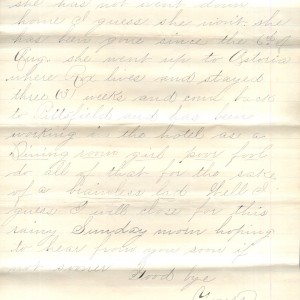 she has not went down
home I guess she wont. she
has been gone since the
Aug. she went up to Astoria
where Roe lives and stayed
three (3) weeks and come back
to Pittsfield and has been
working in the hotel as a
Dining room girl, poor fool
do all of that for the sake
of a brainless kid. Well I
guess I will close for this
rainy Sunday morn hoping
to hear from you soon if
not sooner
Good bye